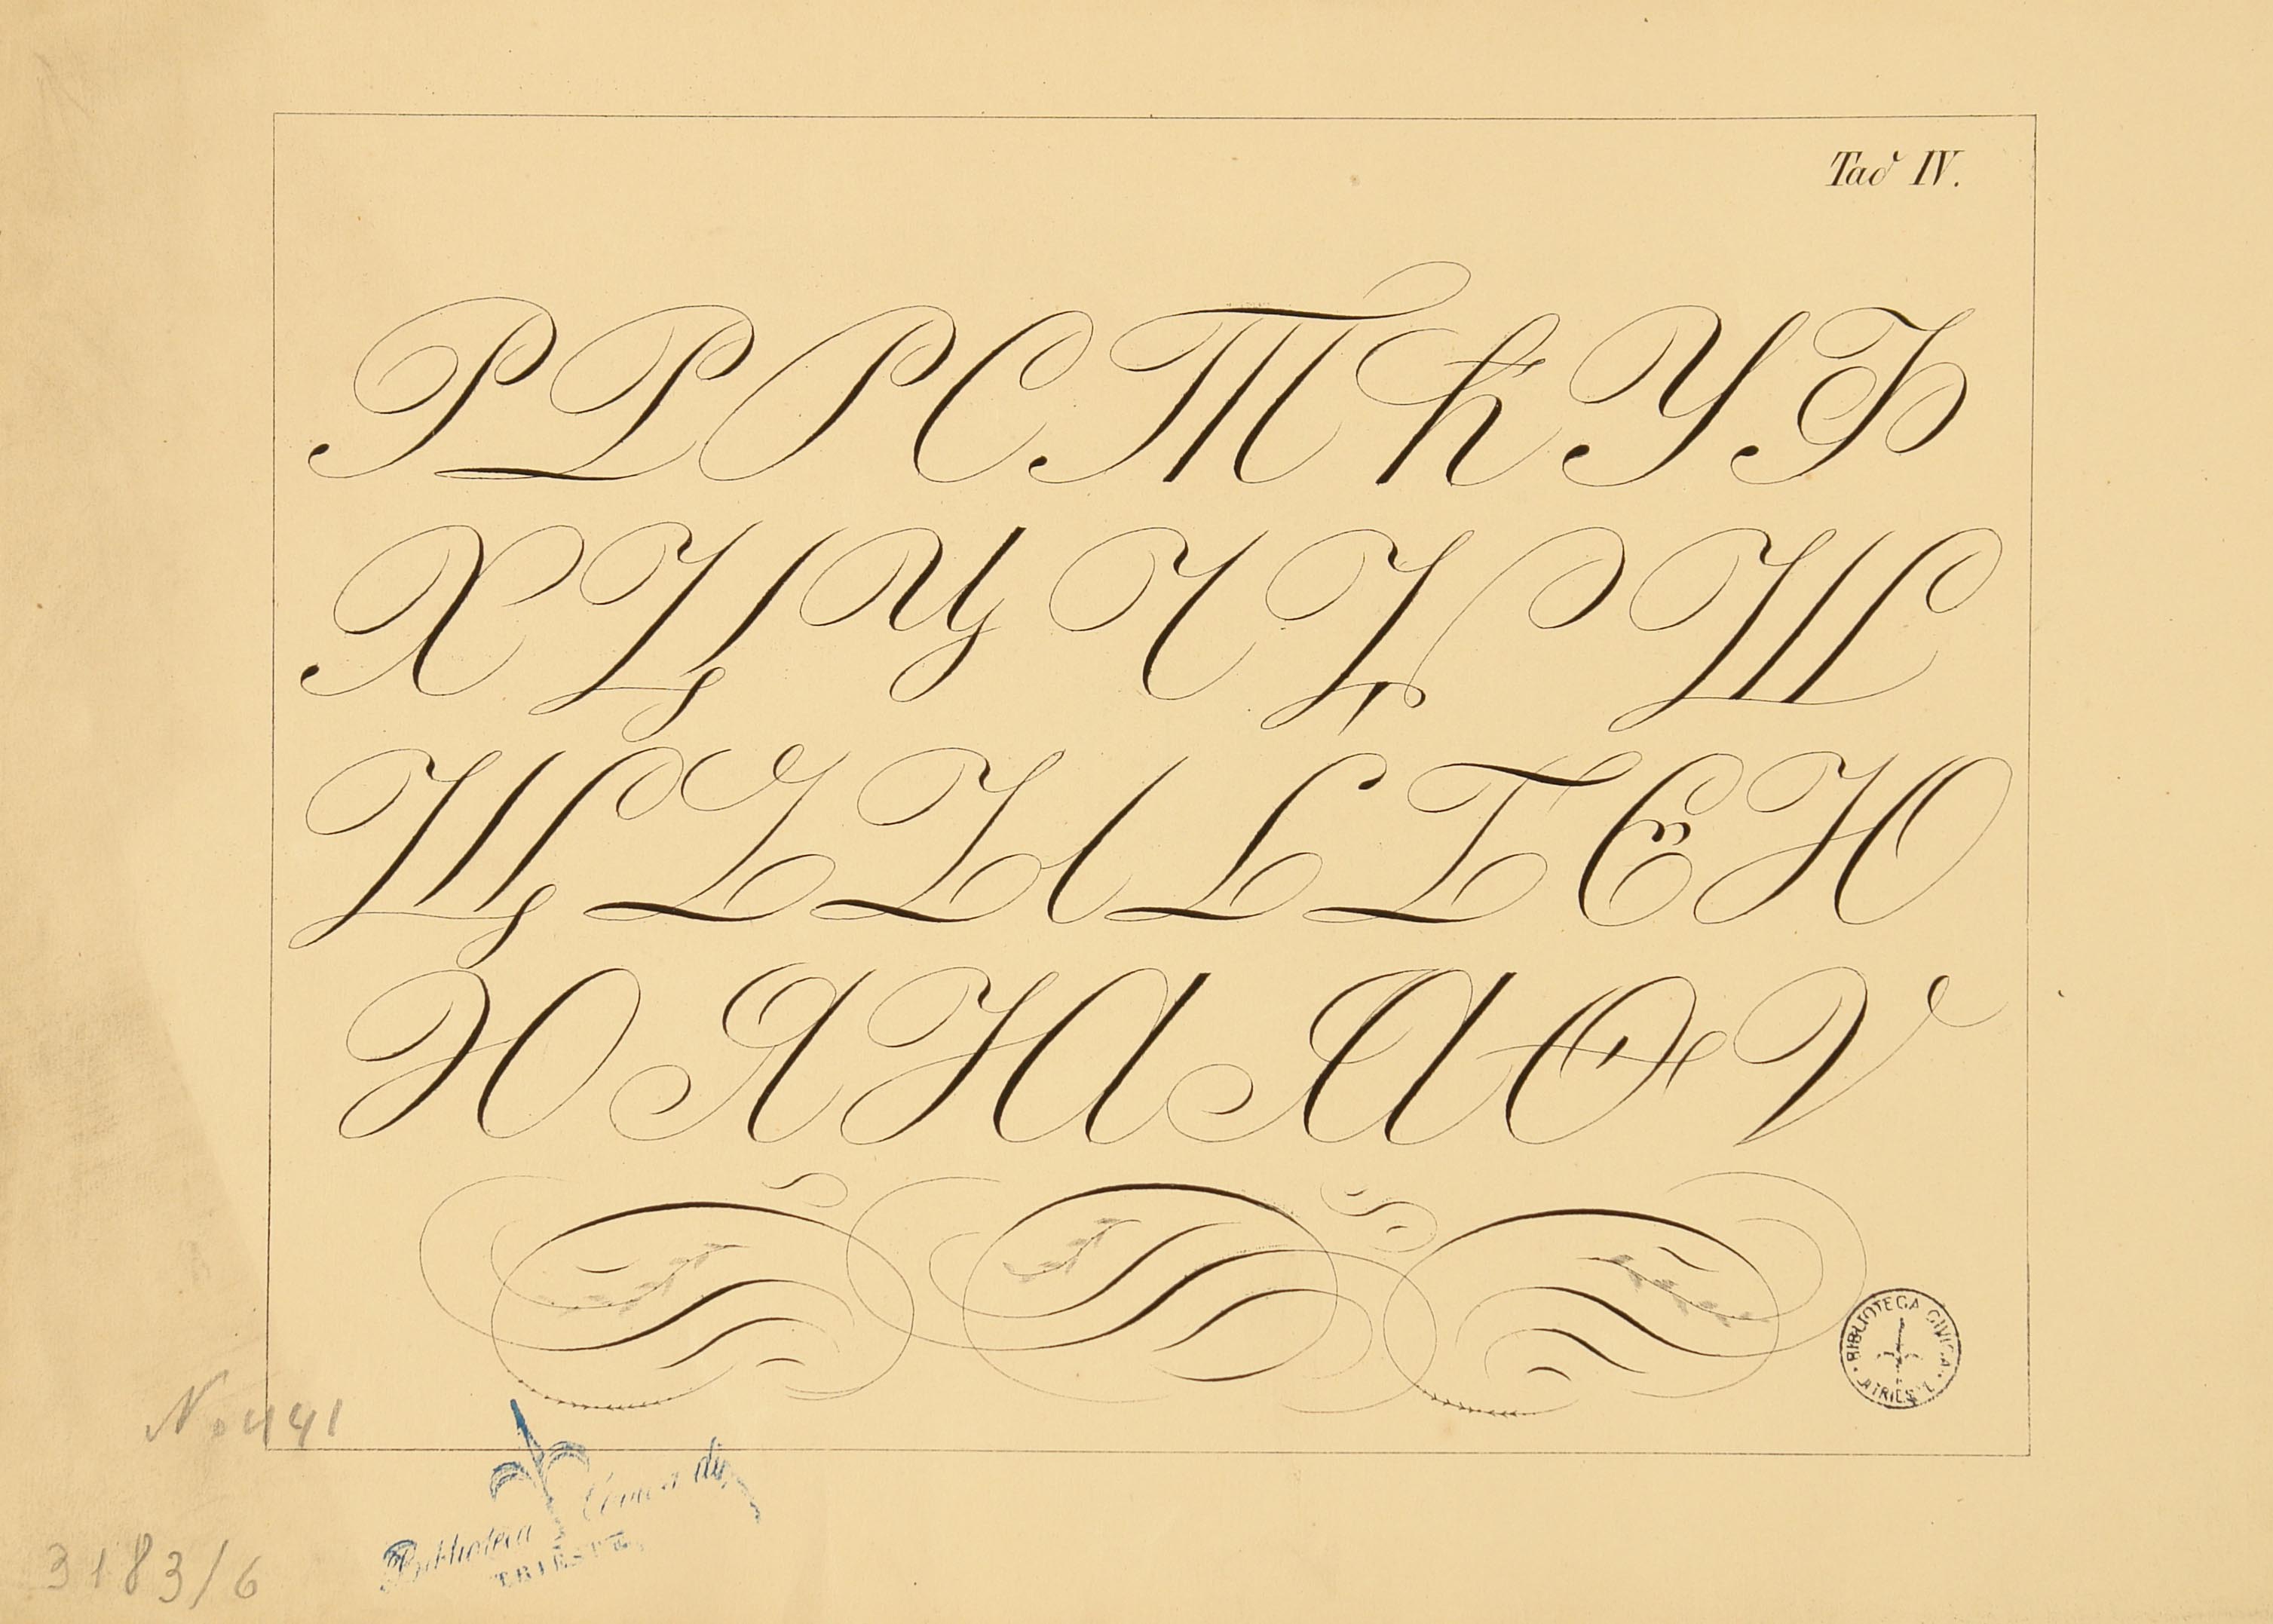 Таб IV.
Р Р Р С Т Ћ У Ф
Х Ц Ц Ч Џ Ш
Щ Ъ Ы Ь Ѣ Є Ю
Ю Я Ꙗ Ѳ Ѵ
BIBLIOTECA CIVICA TRIESTE
No 441
Biblioteca Civica di
TRIESTE
3183/6